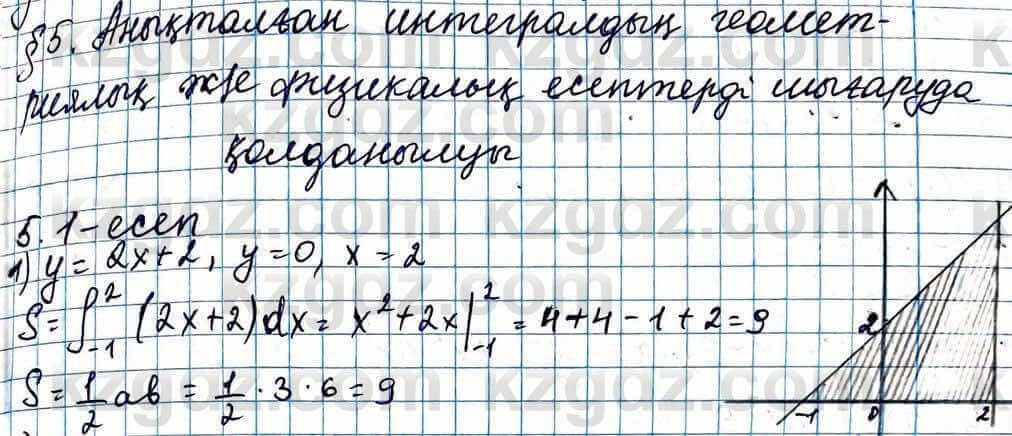 §5. Анықталған интегралдың геомет-
риялық және физикалық есептерді шығаруда
қолданылуы
5.1-есеп
1) y = 2x+2, y = 0, x = 2
S = ∫₋₁² (2x+2)dx = x²+2x|₋₁² = 4+4-1+2 = 9
S = 1/2 ab = 1/2 · 3 · 6 = 9
2
-1 0 2
kzgdz.com